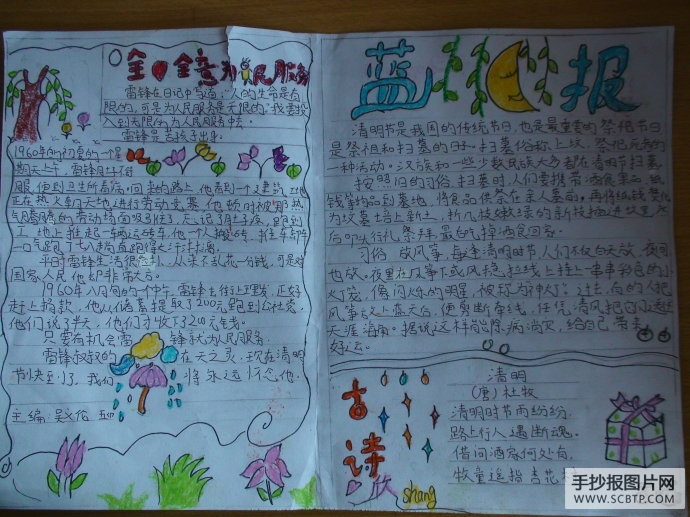 全心全意为人民服务
雷锋在日记中写道:"人的生命是有
限的,可是为人民服务是无限的,我要投
入到无限的为人民服务中去。
雷锋是苦孩子出身。
1960年的初夏的一个星
期天上午,雷锋肚子疼
服,便到卫生所看病,回来的路上,他看到一个建筑工地
正在热火朝天地进行劳动竞赛。他顿时被那热
气腾腾的劳动场面吸引住了,忘记了肚子疼,跑到
工地上推起一辆运砖车,他一个人搬砖
一口气跑了七八趟直跑得大汗淋漓。
平时雷锋生活很 从来不乱花一分钱,可是对
国家人民他却非常大方。
1960年八月旬的一个中午,雷锋去街上理发,正好
赶上捐款,他从储蓄提取了200元跑到公社党
他们说了半天,他们才收下200元钱。
只要有机会雷锋就为人民服务。
雷锋叔叔的在天之灵,现在清明
节快要到了,我们将永远怀念他。
主编:吴
蓝月报
清明节是我国的传统节日,也是最重要的祭祀节日
是祭祖和扫墓的日子。扫墓俗称上坟,祭祀死者的
一种活动。汉族和一些少数民族大多都在清明节扫墓
按照旧的习俗,扫墓时人们要携带酒食果品、纸
钱等物品到墓地,将食品供祭在亲人墓前,再将纸钱焚化
为坟墓培上新土,折几枝嫩绿的新枝插进坟墓,然
后叩头行礼祭拜,最后吃掉酒食回家。
习俗 放风筝,每逢清明节,人们不仅白天放,夜间
也放。夜里在风筝下或风稳拉线上挂上一串串彩色的小
灯笼,像闪烁的明星,被称为"神灯"。过去,有的人把
风筝放上蓝天后,便剪断牵线,任凭清风把它们送往
天涯海角。据说这样能除病消灾,给自己带来
好运。
古诗
欣
shang
清明
(唐)杜牧
清明时节雨纷纷,
路上行人遇断魂。
借问酒家何处有,
牧童遥指杏花
手抄报图片网
WWW.SCBTP.COM